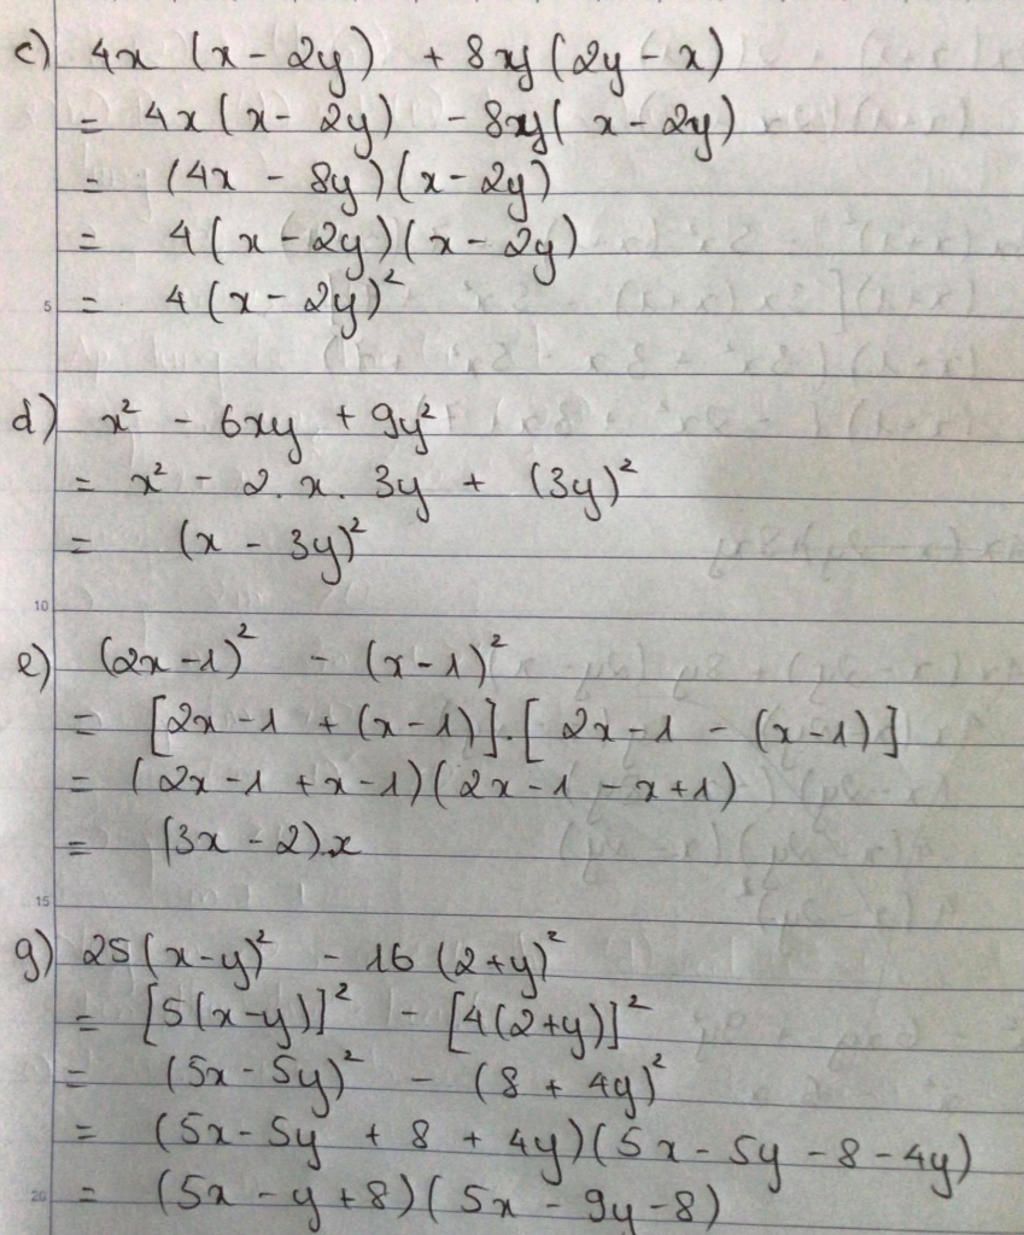 c) 4x (x - 2y) + 8xy (2y - x)
= 4x (x - 2y) - 8xy (x - 2y)
= (4x - 8y) (x - 2y)
= 4 (x - 2y) (x - 2y)
5 = 4 (x - 2y)²
d) x² - 6xy + 9y²
= x² - 2. x. 3y + (3y)²
= (x - 3y)²
10
e) (2x - 1)² - (x - 1)²
= [2x - 1 + (x - 1)] . [2x - 1 - (x - 1)]
= (2x - 1 + x - 1) (2x - 1 - x + 1)
= (3x - 2).x
15
g) 25 (x - y)² - 16 (2 + y)²
= [5(x - y)]² - [4(2 + y)]²
= (5x - 5y)² - (8 + 4y)²
= (5x - 5y + 8 + 4y) (5x - 5y - 8 - 4y)
20 = (5x - y + 8) (5x - 9y - 8)